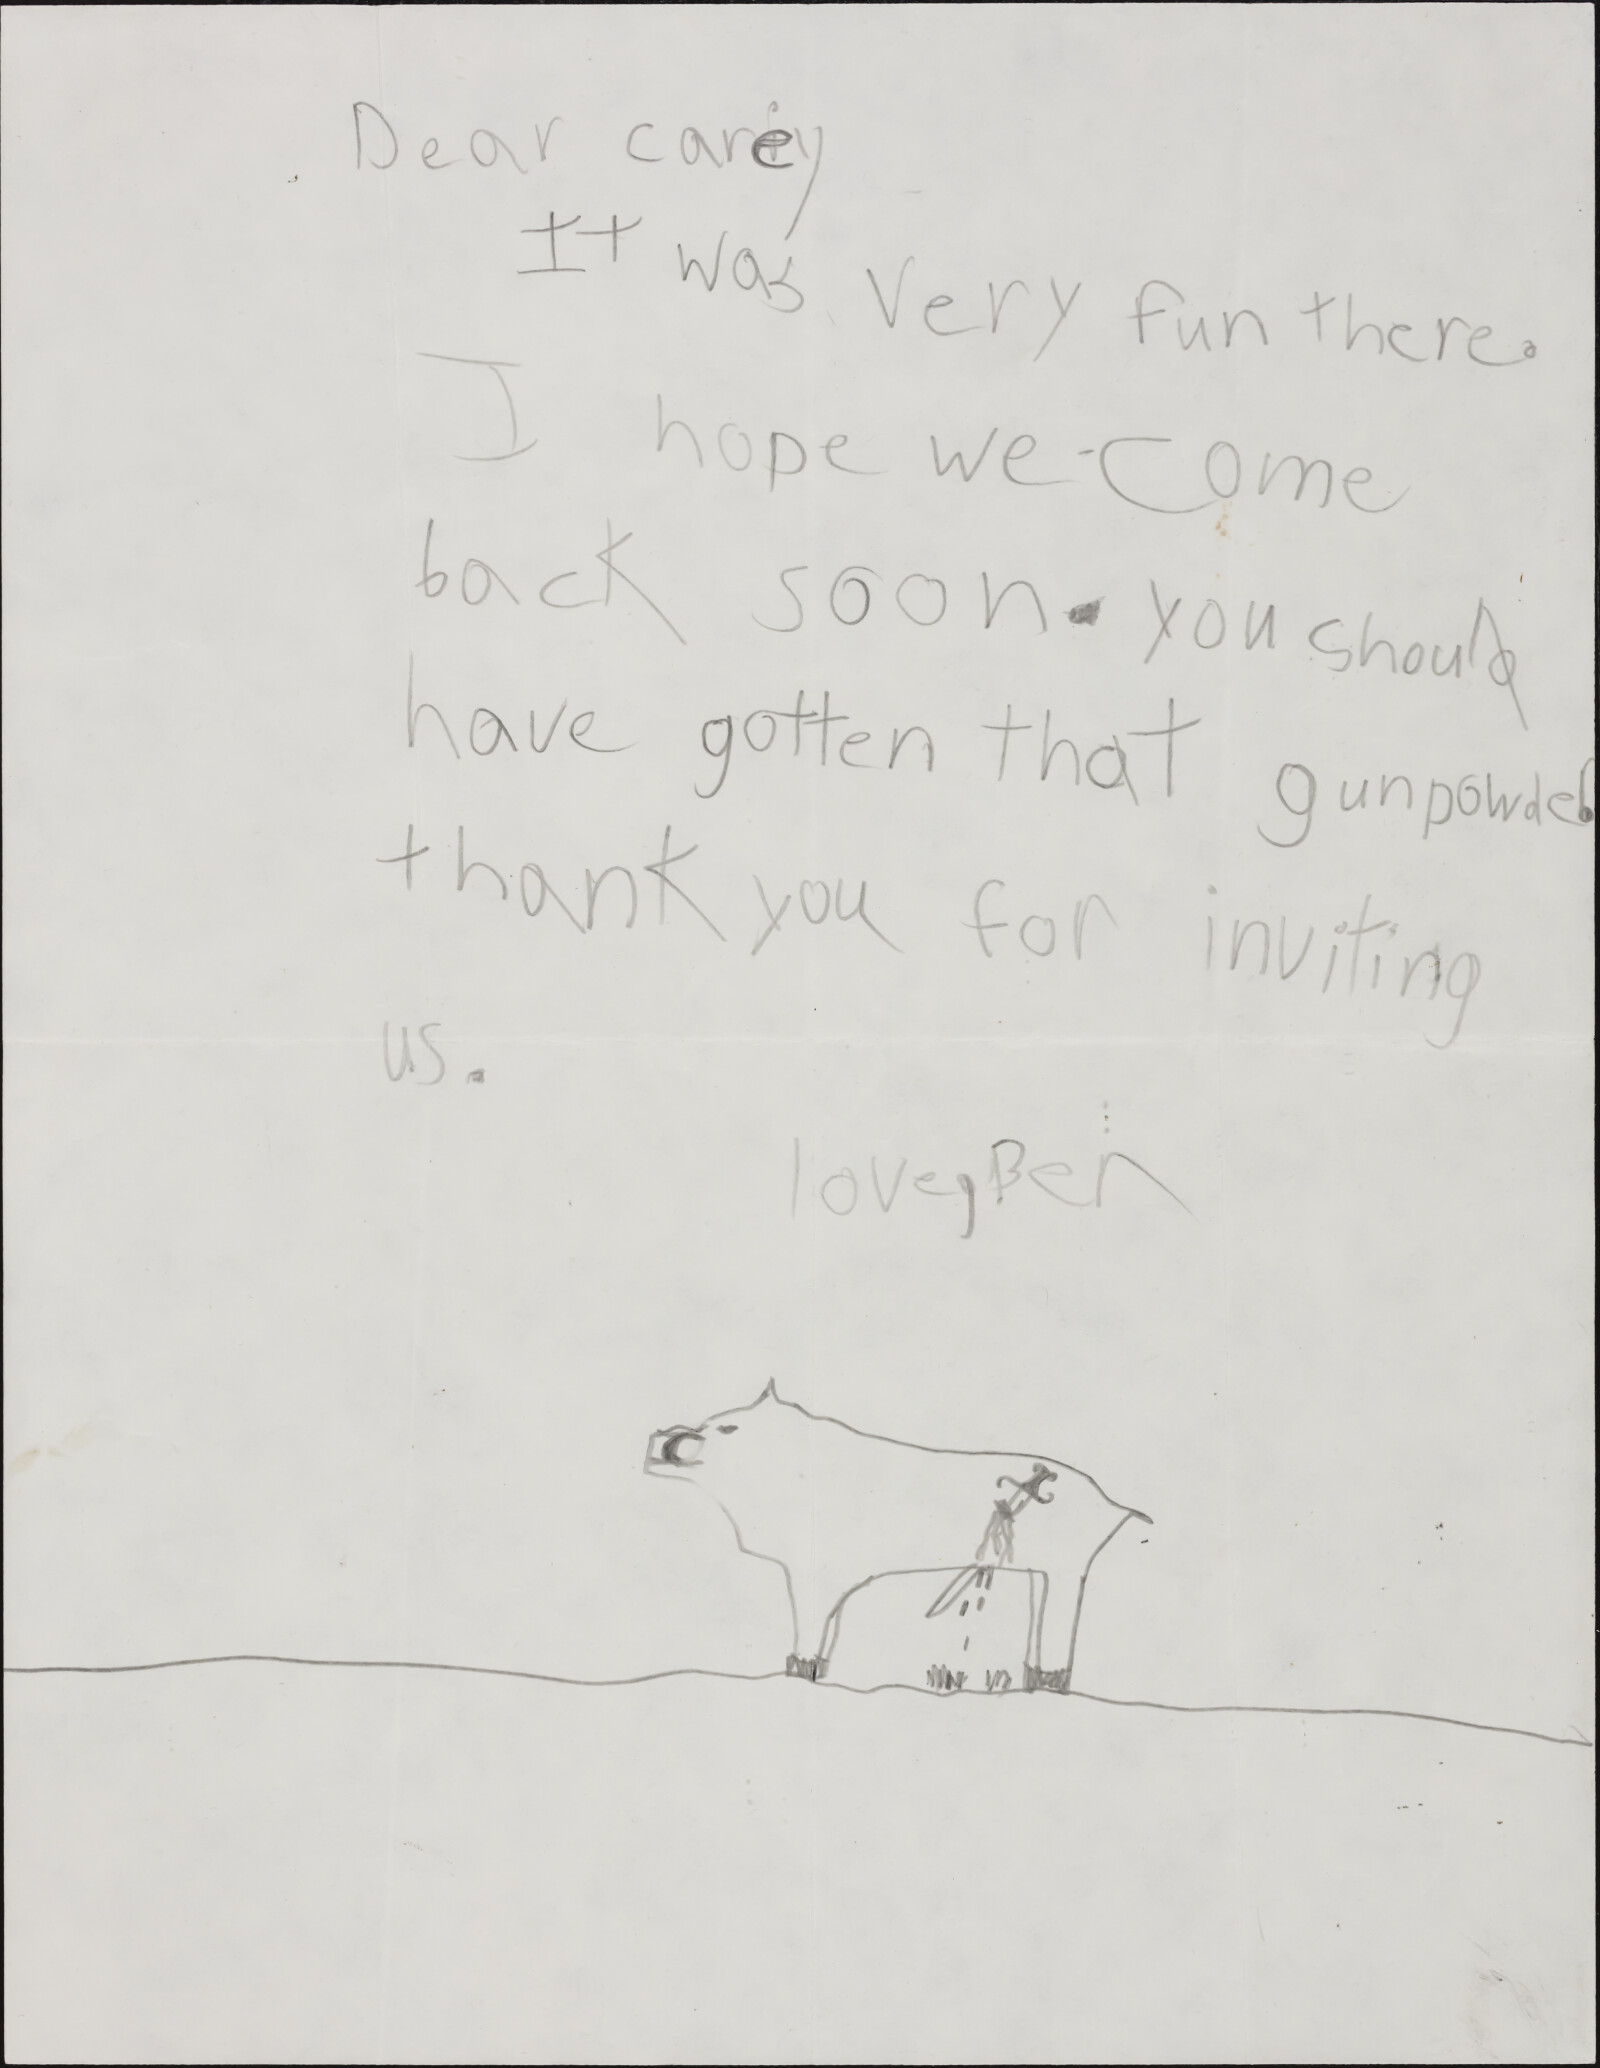 Dear carey
It was very fun there.
I hope we come
back soon. you should
have gotten that gunpowder.
thank you for inviting
us.
love, Ben